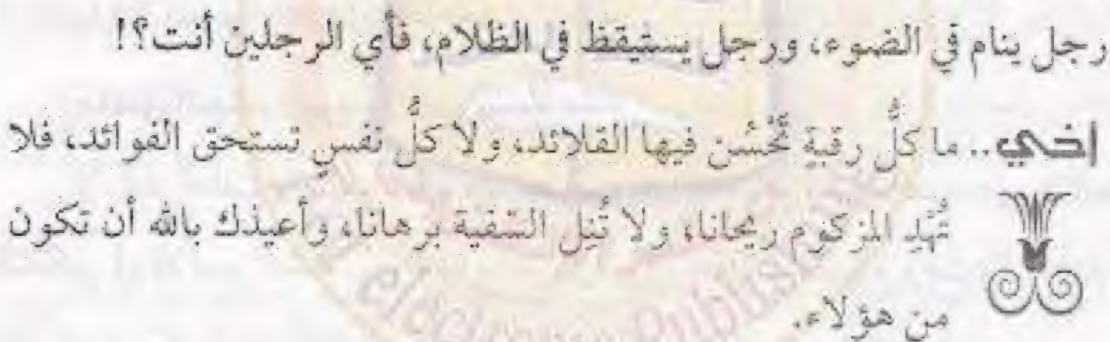 رجل ينام في الضوء، ورجل يستيقظ في الظلام، فأي الرجلين أنت؟!
إخي.. ما كلُّ رقبةٍ تحْسُن فيها القلائد، ولا كلُّ نفسٍ تستحق الفوائد، فلا
تُهْدِ المزكوم ريحانا، ولا تُنِل السّفية برهانا، وأعيذك بالله أن تكون
من هؤلاء.
electronic Publishing